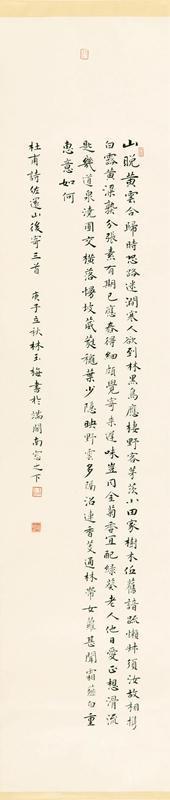 山晚黄雲合歸時恐路迷澗寒人欲到林黑鳥應棲野客茅茨小田家樹木低舊諳踈懶叔須汝故相攜
白露黄粱熟分張素有期已應舂得細頗覺寄來遲味豈同金菊香宜配綠葵老人他日愛正想滑流
匙幾道泉澆圃交橫落幔坡葳蕤穐葉少隱映野雲多隔沼連香芰通林帶女蘿甚聞霜薤白重
惠意如何
杜甫詩佐還山後寄三首 庚子立秋林玉梅書於閣南窗之下